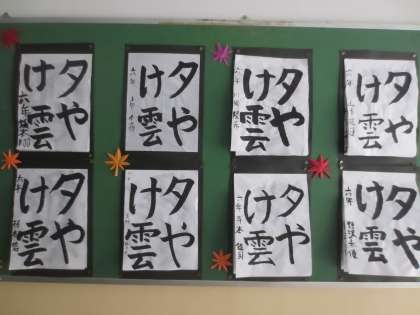 夕や
け雲
六年
夕や
け雲
六年
夕や
け雲
六年
夕や
け雲
六年
夕や
け雲
六年
夕や
け雲
夕や
け雲
六年
夕や
け雲
六年